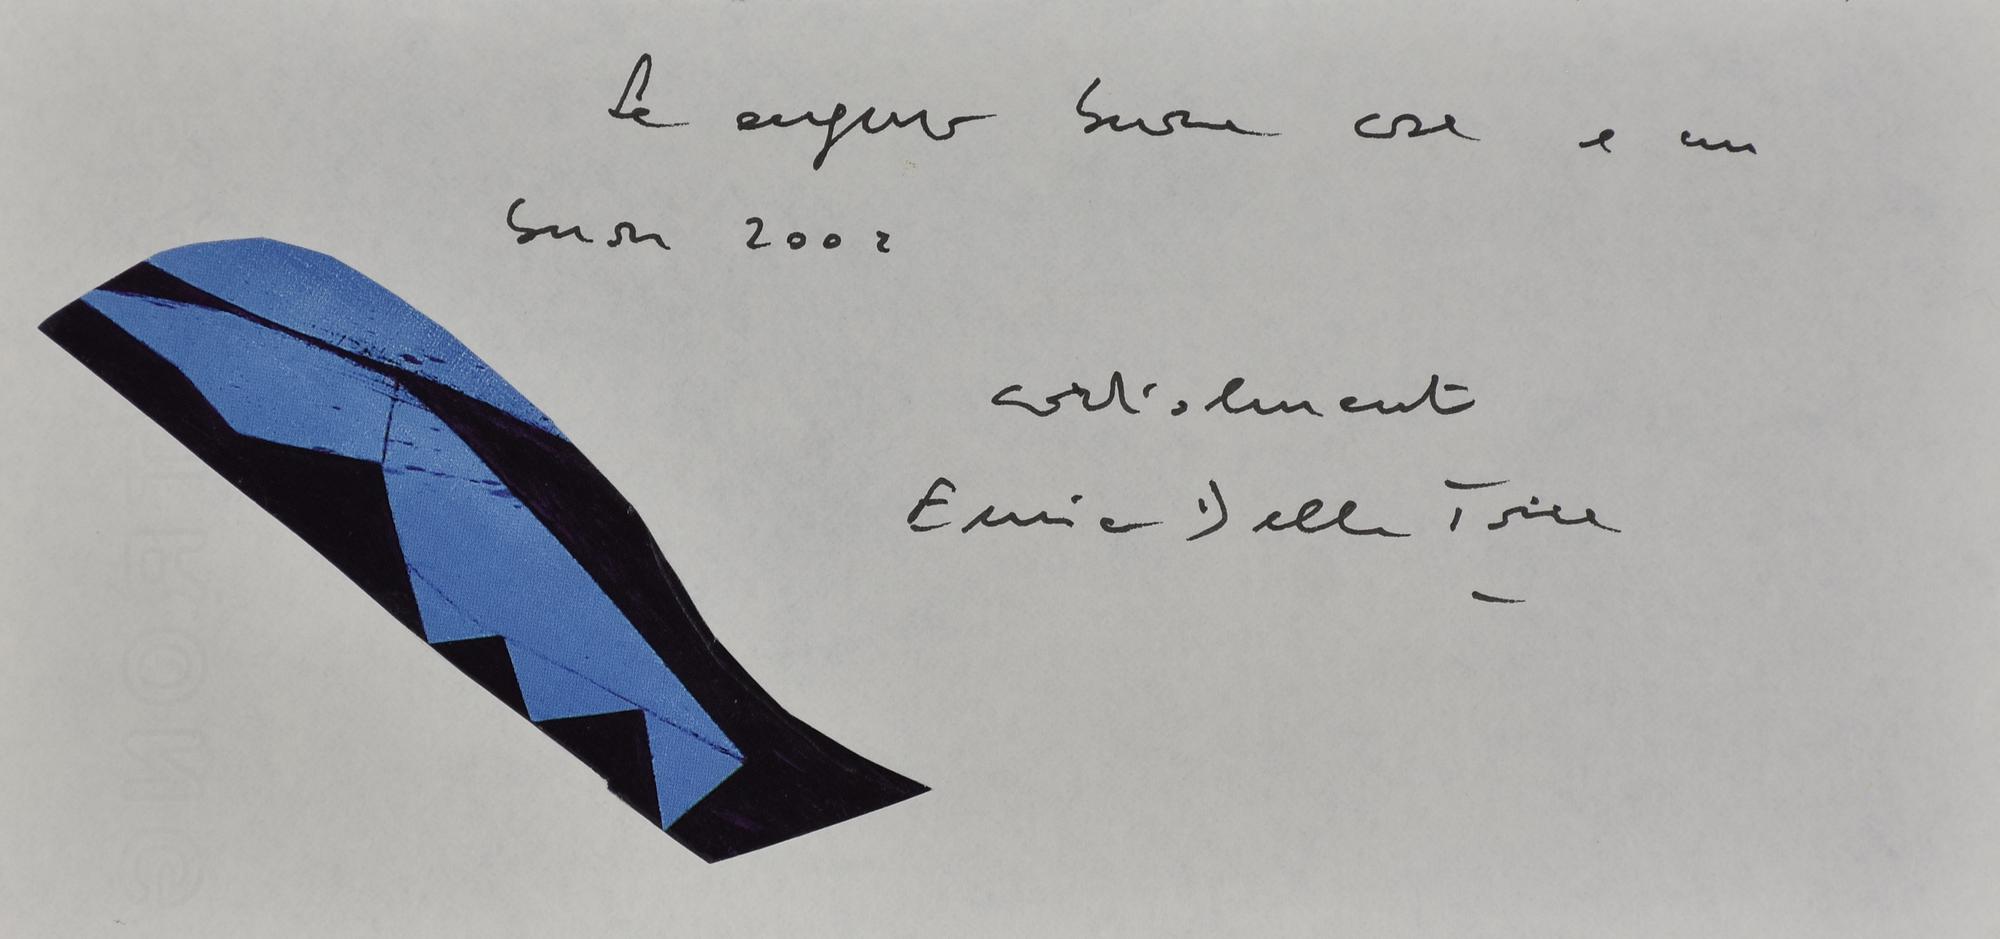 Le auguro buone cose e un
buon 2002
cordialmente
Enrica Della Torre